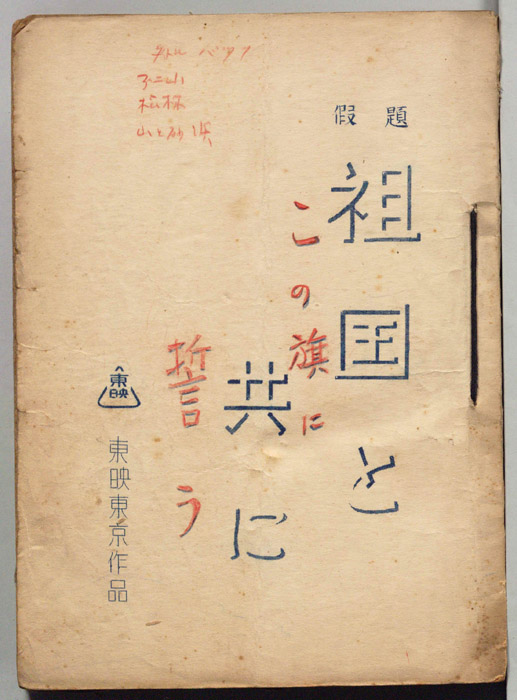 假題
祖国と
共に
この旗に
誓う
タイトルバック
不二山
松林
山と砂浜
東映
東映東京作品